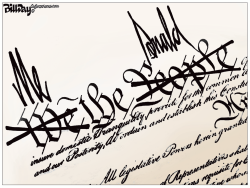 BillDay
Me Donald
We the People
insure domestic Tranquility, provide for the common
and our Posterity, do ordain and establish this
All legislative Powers herein granted
of Representatives